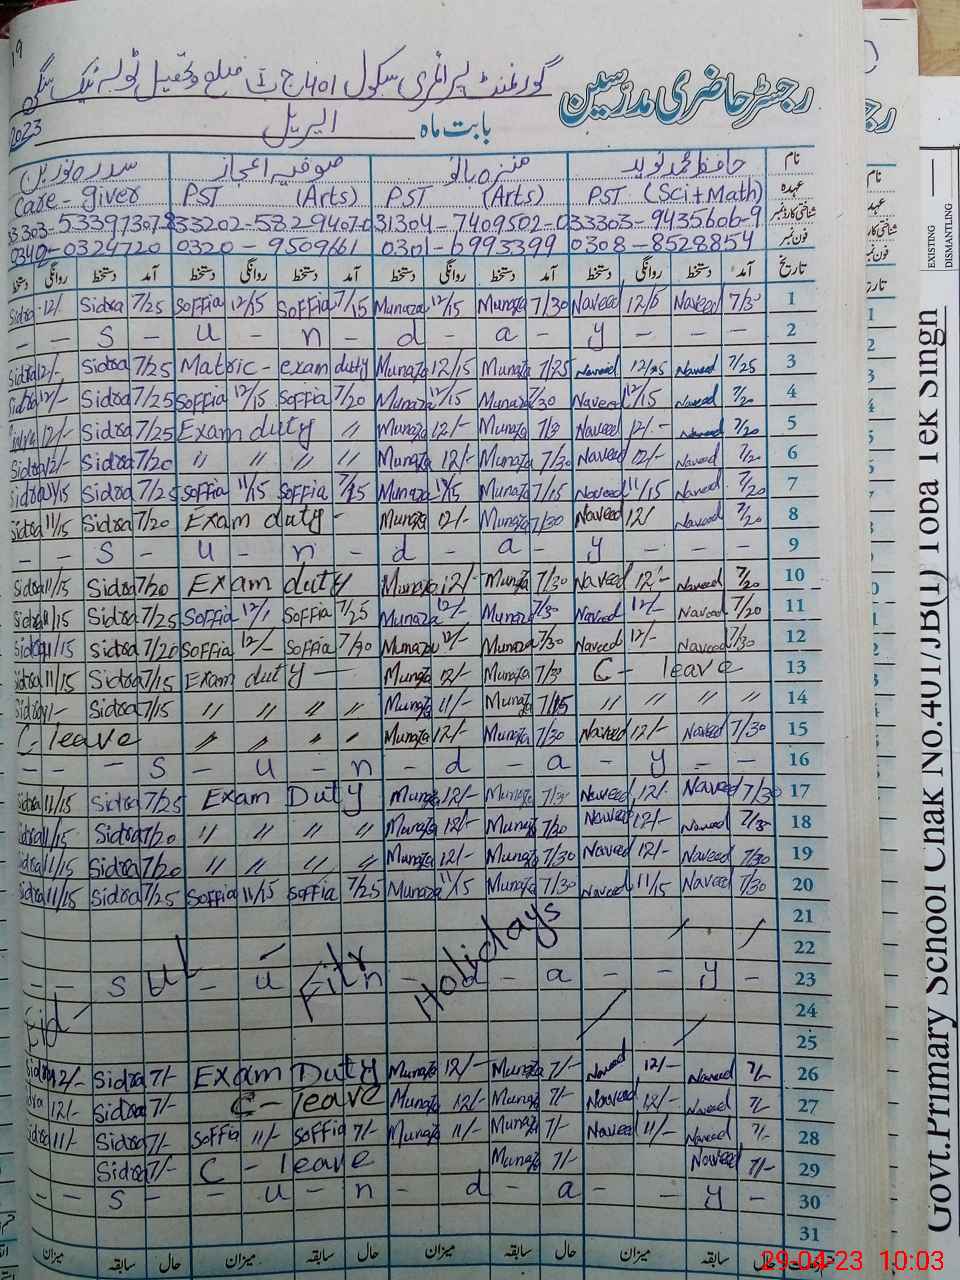 رجسٹر حاضری مدرسین گورنمنٹ پرائمری سکول 401 ج ب I ضلع و تحصیل ٹوبہ ٹیک سنگھ
بابت ماہ اپریل 2023
نام حافظ محمد نوید منزہ بانو صوفیہ اعجاز سدرہ نورین
عہدہ PST (Sci+Math) PST (Arts) PST (Arts) Care-giver
شناختی کارڈ نمبر 33303-9435606-9 31304-7409502-0 33202-5829407-0 33303-5339730
فون نمبر 0308-8528854 0301-6993399 0320-9509661 0340-0324720
تاریخ آمد دستخط روانگی دستخط آمد دستخط روانگی دستخط آمد دستخط روانگی دستخط آمد دستخط روانگی دستخط
Sidra 12/- Sidra 7/25 Soffia 12/15 Soffia 7/15 Munaza 12/15 Munaza 7/30 Naveed 12/15 Naveed 7/30 1
- - S - u - n - d - a - y - - - 2
Sidra 12/- Sidra 7/25 Matric - exam duty Munaza 12/15 Munaza 7/25 Naveed 12/15 Naveed 7/25 3
Sidra 12/- Sidra 7/25 Soffia 12/15 Soffia 7/20 Munaza 12/15 Munaza 7/30 Naveed 12/15 Naveed 7/20 4
Sidra 12/- Sidra 7/25 Exam duty // Munaza 12/- Munaza 7/3 Naveed 12/- Naveed 7/20 5
Sidra 12/- Sidra 7/20 // // // // Munaza 12/- Munaza 7/30 Naveed 12/- Naveed 7/20 6
Sidra 11/15 Sidra 7/25 Soffia 11/15 Soffia 7/25 Munaza 11/15 Munaza 7/15 Naveed 11/15 Naveed 7/20 7
Sidra 11/15 Sidra 7/20 Exam duty - Munaza 12/- Munaza 7/30 Naveed 12/ Naveed 7/20 8
- - S - u - n - d - a - y - - - 9
Sidra 11/15 Sidra 7/20 Exam duty Munaza 12/- Munaza 7/30 Naveed 12/- Naveed 7/20 10
Sidra 11/15 Sidra 7/25 Soffia 12/1 Soffia 7/25 Munaza 12/- Munaza 7/30 Naveed 12/- Naveed 7/20 11
Sidra 11/15 Sidra 7/20 Soffia 12/- Soffia 7/30 Munaza 12/- Munaza 7/30 Naveed 12/- Naveed 7/30 12
Sidra 11/15 Sidra 7/15 Exam duty - Munaza 12/- Munaza 7/30 C - leave 13
Sidra 11/- Sidra 7/15 // // // // Munaza 11/- Munaza 7/15 // // // // 14
C - leave // // // // Munaza 12/- Munaza 7/30 Naveed 12/- Naveed 7/30 15
- - - S - u - n - d - a - y - - 16
Sidra 11/15 Sidra 7/25 Exam Duty Munaza 12/- Munaza 7/30 Naveed 12/- Naveed 7/30 17
Sidra 11/15 Sidra 7/20 // // // // Munaza 12/- Munaza 7/20 Naveed 12/- Naveed 7/30 18
Sidra 11/15 Sidra 7/20 // // // // Munaza 12/- Munaza 7/30 Naveed 12/- Naveed 7/30 19
Sidra 11/15 Sidra 7/25 Soffia 11/15 Soffia 7/25 Munaza 11/15 Munaza 7/30 Naveed 11/15 Naveed 7/30 20
21
22
- - S - u - n - d - a - - y - 23
Eid - ul - Fitr Holidays
24
25
Sidra 12/- Sidra 7/- Exam Duty Munaza 12/- Munaza 7/- Naveed 12/- Naveed 7/- 26
Sidra 12/- Sidra 7/- C - leave Munaza 12/- Munaza 7/- Naveed 12/- Naveed 7/- 27
Sidra 11/- Sidra 7/- Soffia 11/- Soffia 7/- Munaza 11/- Munaza 7/- Naveed 11/- Naveed 7/- 28
Sidra 7/- C - leave Munaza 7/- Naveed 7/- 29
- - S - - u - n - d - a - - y - 30
31
حال سابقہ میزان حال سابقہ میزان حال سابقہ میزان
Govt.Primary School Chak No.401/JB(I) Toba Tek Singh
EXISTING
DISMANTLING
29-04-23 10:03